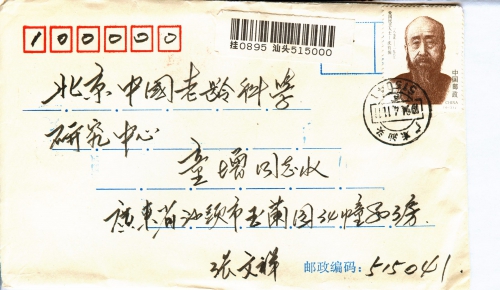 100000
桂0895 汕头515000
中国邮政
北京中国老龄科学
研究中心
童增同志收
广东省汕头市玉兰园34幢
张文祥
邮政编码: 515041